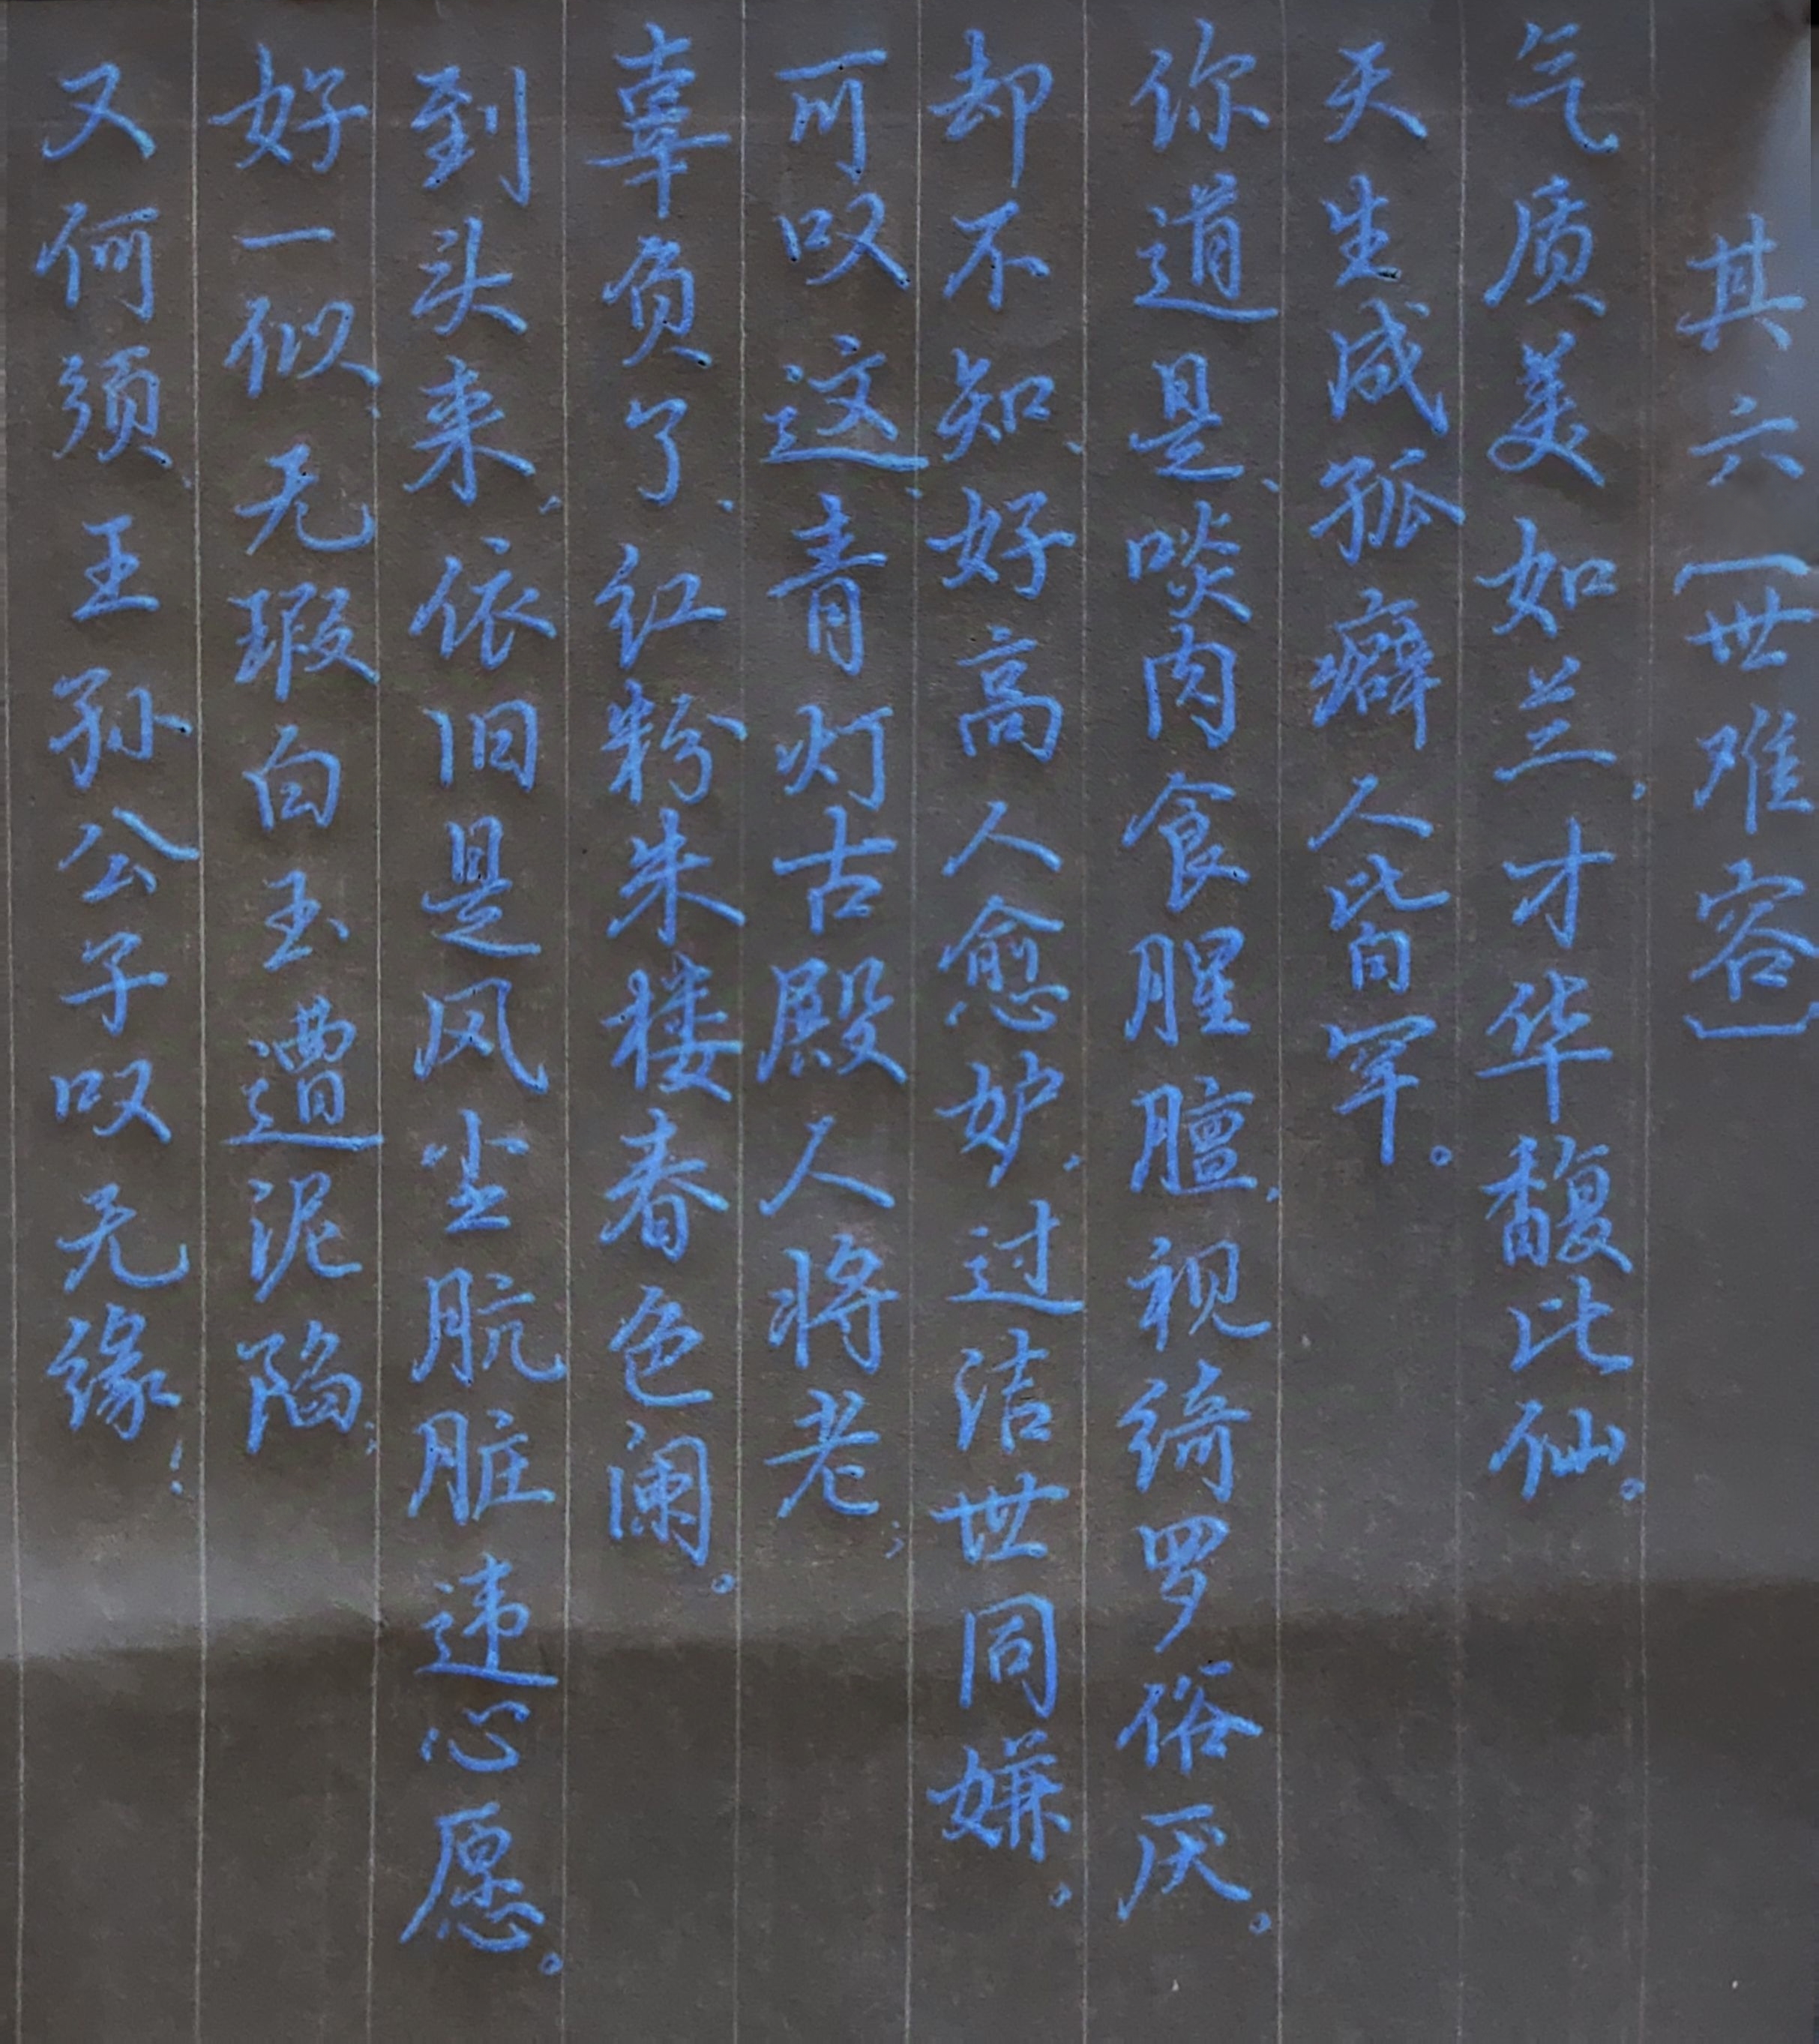 其六[世难容]
气质美如兰，才华馥比仙。
天生成孤癖人皆罕。
你道是、啖肉食腥膻，视绮罗俗厌。
却不知、好高人愈妒，过洁世同嫌。
可叹这、青灯古殿人将老；
辜负了、红粉朱楼春色阑。
到头来、依旧是风尘肮脏违心愿。
好一似、无瑕白玉遭泥陷；
又何须、王孙公子叹无缘！